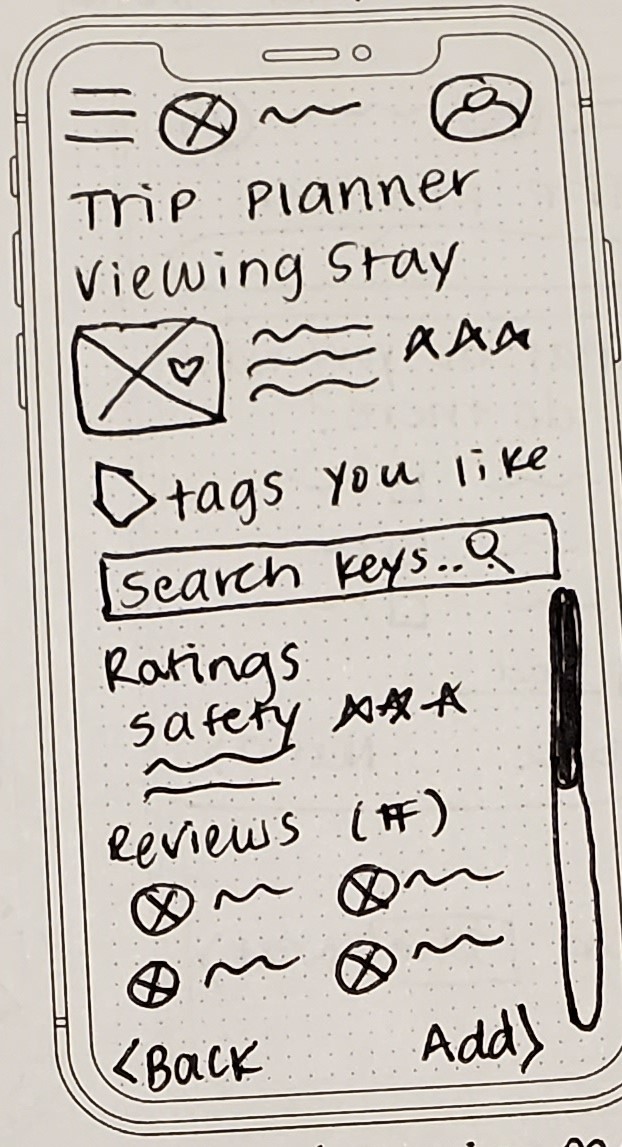 Trip Planner
Viewing Stay
tags you like
Search keys..
Ratings
safety
Reviews (#)
<Back
Add>